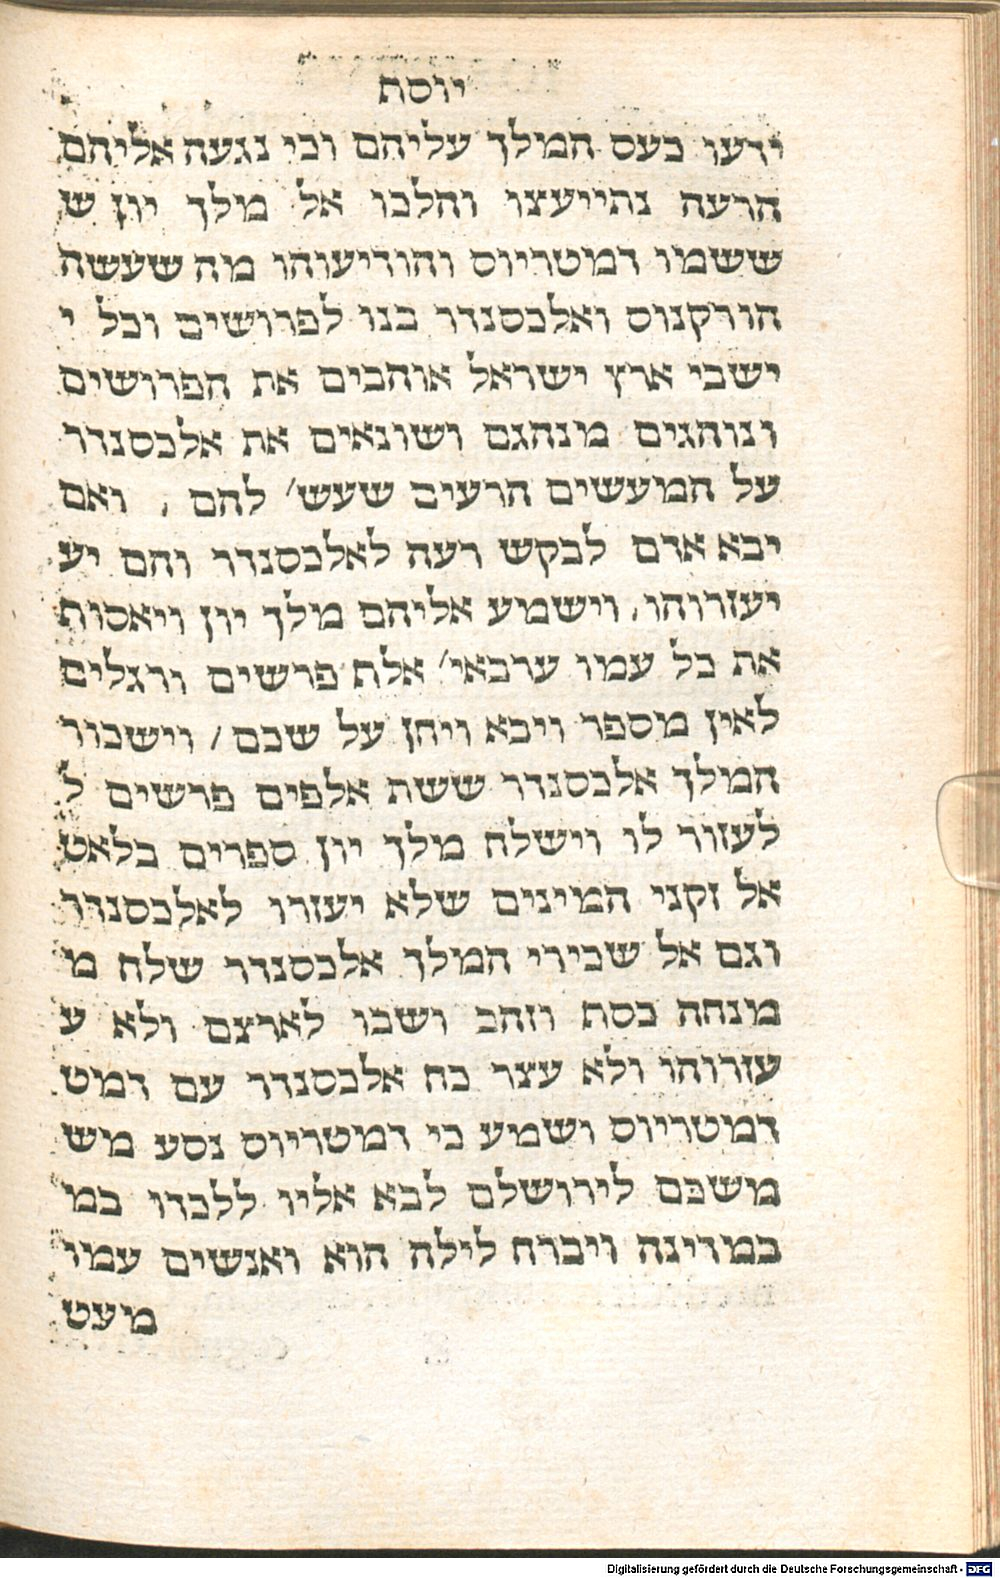 יוסף
ידעו כעס המלך עליהם וכי נגעה אליהם
הרעה נתייעצו והלכו אל מלך יון ש
ששמו דמטריוס והודיעוהו מה שעשה
הורקנוס ואלכסנדר בנו לפרושים וכל י
ישבי ארץ ישראל אוהבים את הפרושים
ונוהגים מנהגם ושונאים את אלכסנדר
על המעשים הרעים שעש׳ להם , ואם
יבא אדם לבקש רעה לאלכסנדר והם יע
יעזרוהו, וישמע אליהם מלך יון ויאסוף
את כל עמו ערבאי׳ אלף פרשים ורגלים
לאין מספר ויבא ויחן על שכם / וישכור
המלך אלכסנדר ששת אלפים פרשים ל
לעזור לו וישלח מלך יון ספרים בלאט
אל זקני המינים שלא יעזרו לאלכסנדר
וגם אל שכירי המלך אלכסנדר שלח מ
מנחה כסף וזהב ושבו לארצם ולא ע
עזרוהו ולא עצר כח אלכסנדר עם דמט
דמטריוס ושמע כי דמטריוס נסע מש
משכם לירושלם לבא אליו ללכדו במ
במדינה ויברח לילה הוא ואנשים עמו
מעט
Digitalisierung gefördert durch die Deutsche Forschungsgemeinschaft - DFG